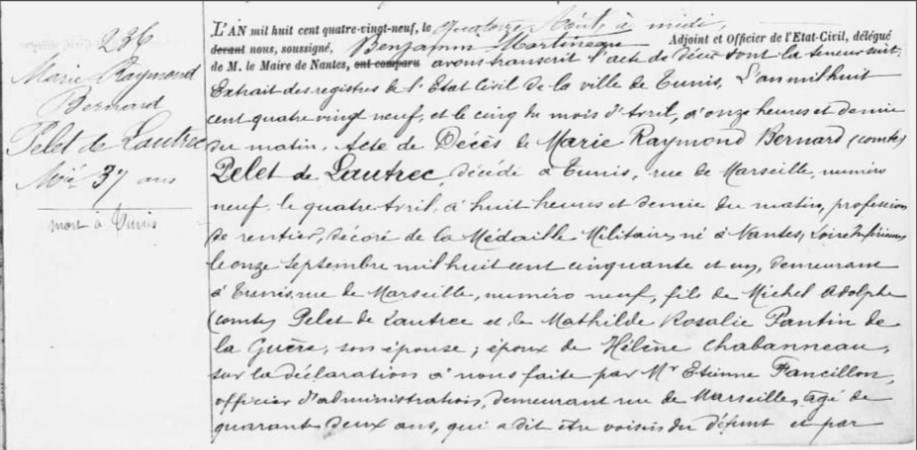 236
Marie Raymond
Bernard
Pelet de Lautrec
Mié 37 ans
mort à Tunis
L'AN mil huit cent quatre-vingt-neuf, le quatorze Août à midi,
devant nous, soussigné, Benjamin Martineau Adjoint et Officier de l'Etat-Civil, délégué
de M. le Maire de Nantes, ont comparu avons transcrit l'acte de décès dont la teneur suit:
Extrait des registres de l'Etat Civil de la ville de Tunis, L'an mil huit
cent quatre vingt neuf, et le cinq du mois d'Avril, à onze heures et demie
du matin. Acte de Décès de Marie Raymond Bernard (comte)
Pelet de Lautrec, décédé à Tunis, rue de Marseille, numéro
neuf, le quatre Avril, à huit heures et demie du matin, profession
de rentier, décoré de la Médaille Militaire, né à Nantes, Loire Inférieure
le onze Septembre mil huit cent cinquante et un, demeurant
à Tunis, rue de Marseille, numéro neuf, fils de Michel Adolphe
(comte) Pelet de Lautrec et de Mathilde Rosalie Pantin de
la Guère, son épouse; époux de Hélène Chabanneau,
sur la déclaration à nous faite par Mr Etienne Fancillon,
officier d'administration, demeurant rue de Marseille, âgé de
quarante deux ans, qui a dit être voisin du défunt et par